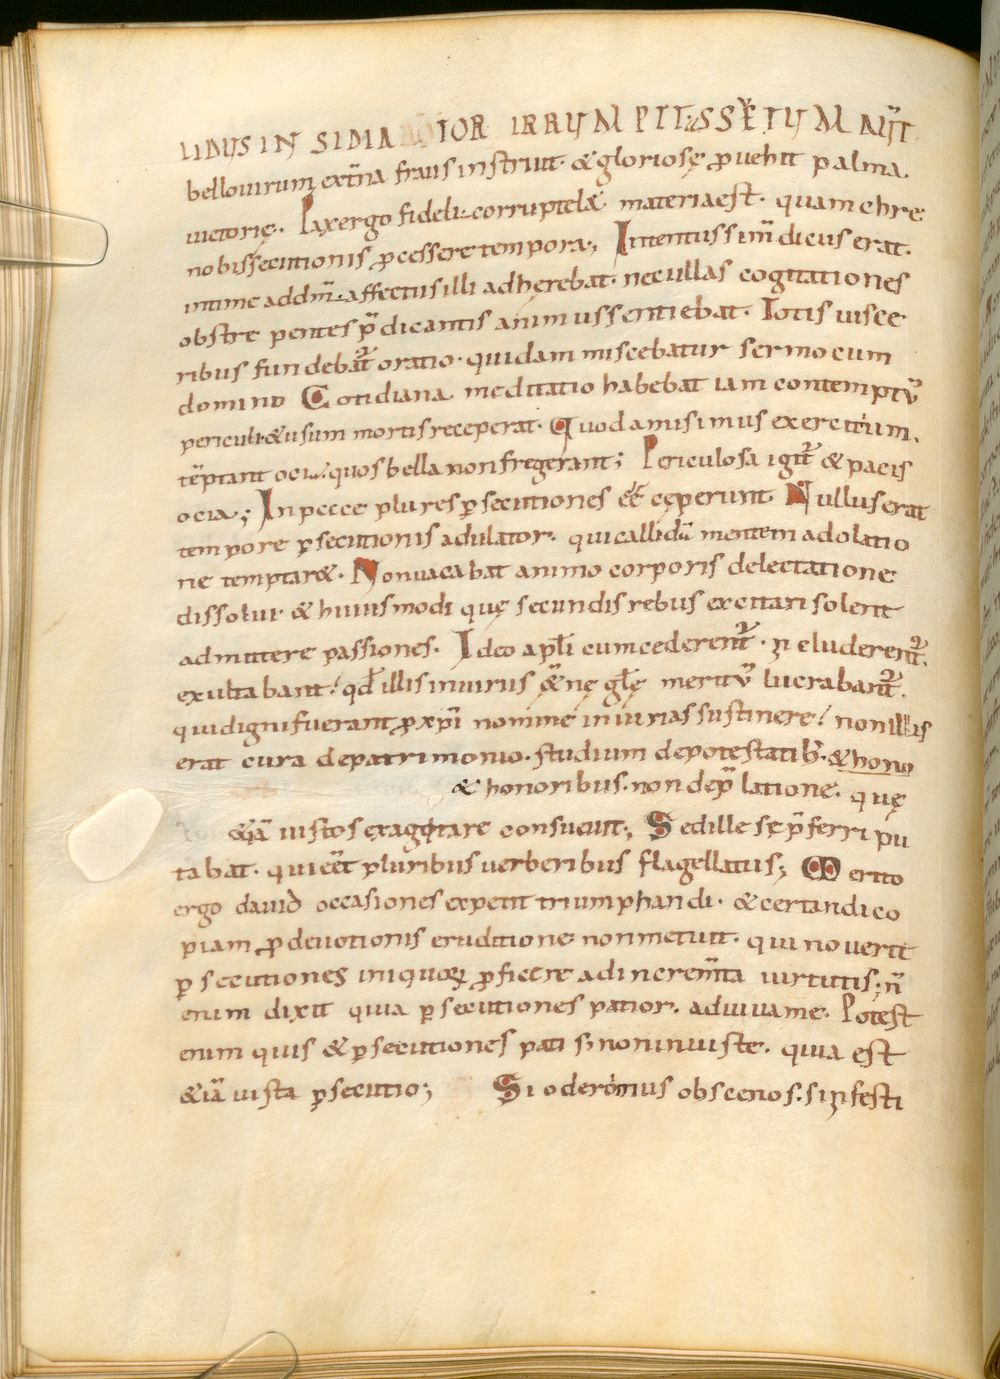 LIDUS IN SIDIATOR IRRUMPIT; SSĒTUM MŪT
bello uirum, ext̄na fraus instruit. & gloriosę ꝓuehit palma.
uictorię. Pax ergo fideli corruptelæ materia est. quam chre
nobis secutionis ꝓcessere tempora; Intentus sim̄ dicus erat.
intime ad dm̄. affectus illi adherebat. nec ullas cogitationes
obstrepentes p̄dicantis animus sentiebat. Totis uisce
ribus fundebat᷑ oratio. quidam miscebatur sermo cum
domino Cotidiana meditatio habebat iam contemptū
periculi. & usum mortis receperat. Quod amisimus exercitium.
tēptant ocia. quos bella non fregerant; Periculosa igit᷑ & pacis
ocia; In pace plures ꝑsecutiones eē cęperunt. Nullus erat
tempore ꝑsecutionis adulator. qui callidū mentem adolatio
ne temptaræ. Non uacabat animo corporis delectatione
dissolui. & huiusmodi quę secundis rebus excitari solent
admittere passiones. Ideo apl̄i cum cederent᷑. ń eluderent᷑.
exultabant. qd̄ illis iniuriis æt̄nę gl̄ę meritū lucrabant᷑.
qui digni fuerant ꝓ xp̄i nomine iniurias sustinere. non illis
erat cura de patrimonio. studium de potestatib᷒. & hono
& honoribus. non de p̄latione. quę
&iā iustos exagitare consueuit; Sed ille sę p̄ferri pu
tabat. qui eēt pluribus uerberibus flagellatus; Merito
ergo dauid occasiones expetit triumphandi. & certandi co
piam ꝓ deuotionis eruditione non metuit. qui nouerit
ꝑsecutiones iniquoꝝ ꝓficere ad increm̄ta uirtutis; n̄
enim dixit quia ꝑsecutiones patior. adiuua me. Potest
enim quis & ꝑsecutiones pati s; non iniuste. quia est
&iā iusta ꝑsecutio; Si oderimus obscenos. si infesti